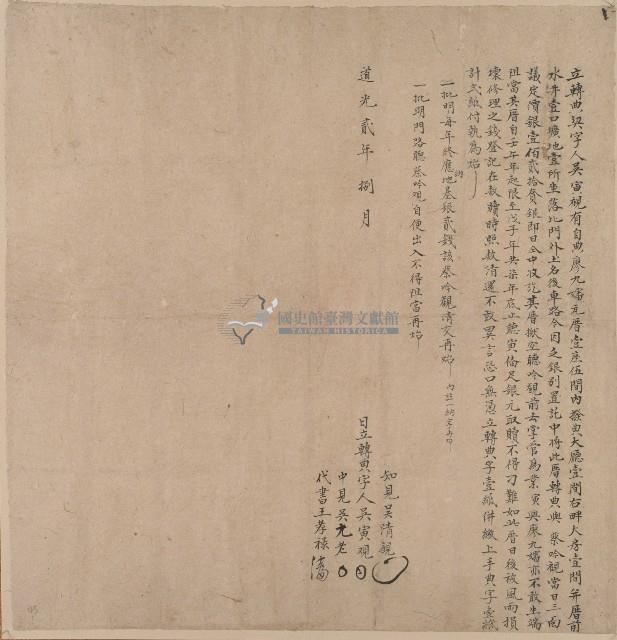 立轉典契字人吳寅觀有自典廖九嬸瓦厝壹座伍間內撥出大廳壹間右畔大房壹間并厝前
水井壹口曠地壹所坐落北門外土名後車路今因乏銀別置託中將此厝轉典與 蔡吟觀當日三面
議定價銀壹佰貳拾員銀即日仝中收訖其厝撳空聽吟觀前去掌管為業寅與廖九嬸亦不敢生端
阻當其厝自壬午年起限至戊子年共柒年底止聽寅備足銀元取贖不得刁難如此厝日後被風雨損
壞修理之錢登記在數贖時照數清還不敢異言恐口無憑立轉典字壹紙併繳上手典字壹紙
計弍紙付執為炤
一批明每年終應納地基銀貳錢該蔡吟觀清交再炤 內註一納字再炤
一批明門路聽蔡吟觀自便出入不得阻當再炤
道光貳年捌月
知見吳清觀
日立轉典字人吳寅觀
中見吳尢老
代書王孝祿
國史館臺灣文獻館
TAIWAN HISTORICA